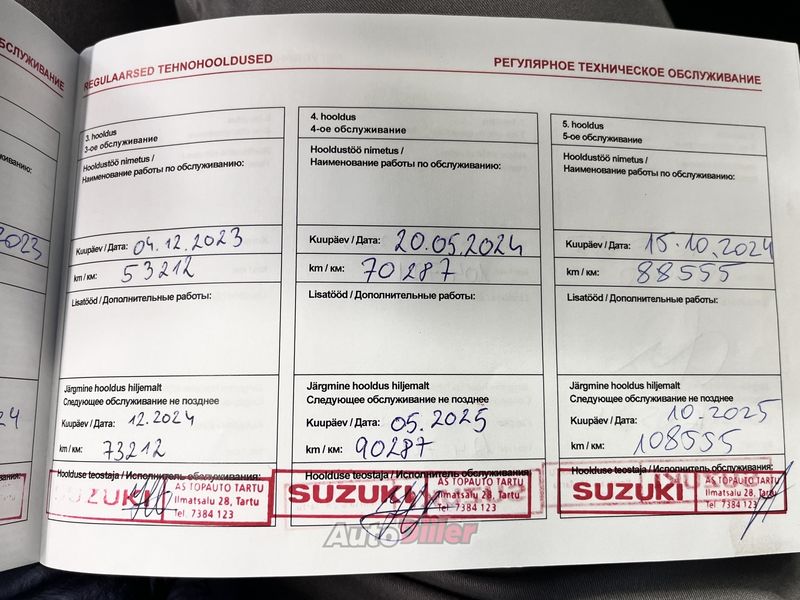 БСЛУЖИВАНИЕ
REGULAARSED TEHNOHOOLDUSED
РЕГУЛЯРНОЕ ТЕХНИЧЕСКОЕ ОБСЛУЖИВАНИЕ
3. hooldus
3-ое обслуживание
Hooldustöö nimetus /
Наименование работы по обслуживанию:
Kuupäev / Дата: 04.12.2023
km / км: 53212
Lisatööd / Дополнительные работы:
Järgmine hooldus hiljemalt
Следующее обслуживание не позднее
Kuupäev / Дата: 12.2024
km / км: 73212
Hoolduse teostaja / Исполнитель обслуживания:
SUZUKI
AS TOPAUTO TARTU
Ilmatsalu 28, Tartu
Tel. 7384 123
4. hooldus
4-ое обслуживание
Hooldustöö nimetus /
Наименование работы по обслуживанию:
Kuupäev / Дата: 20.05.2024
km / км: 70287
Lisatööd / Дополнительные работы:
Järgmine hooldus hiljemalt
Следующее обслуживание не позднее
Kuupäev / Дата: 05.2025
km / км: 90287
Hoolduse teostaja / Исполнитель обслуживания:
SUZUKI
AS TOPAUTO TARTU
Ilmatsalu 28, Tartu
Tel. 7384 123
5. hooldus
5-ое обслуживание
Hooldustöö nimetus /
Наименование работы по обслуживанию:
Kuupäev / Дата: 15.10.2024
km / км: 88555
Lisatööd / Дополнительные работы:
Järgmine hooldus hiljemalt
Следующее обслуживание не позднее
Kuupäev / Дата: 10.2025
km / км: 108555
Hoolduse teostaja / Исполнитель обслуживания:
SUZUKI
AS TOPAUTO TARTU
Ilmatsalu 28, Tartu
Tel. 7384 123
AutoDiiler